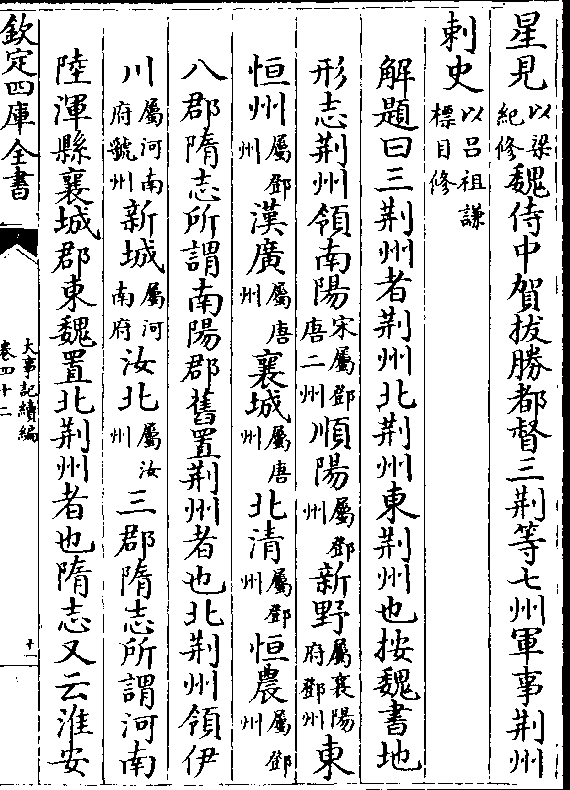 星見以梁紀修魏侍中賀拔勝都督三荆等七州軍事荆州
刺史以吕祖謙標目修
解題曰三荆州者荆州北荆州東荆州也按魏書地
形志荆州領南陽宋屬鄧唐二州順陽屬鄧州新野屬襄陽府鄧州東
恒州屬鄧州漢廣屬唐州襄城屬唐州北清屬鄧州恒農屬鄧州
八郡隋志所謂南陽郡舊置荆州者也北荆州領伊
川屬河南府虢州新城屬河南府汝北屬汝州三郡隋志所謂河南
陸渾縣襄城郡東魏置北荆州者也隋志又云淮安
欽定四庫全書
大事記續編
卷四十二
十